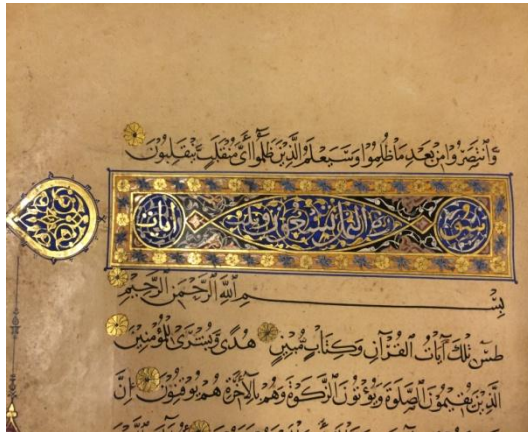 وَانْتَصَرُوا مِنْ بَعْدِ مَا ظُلِمُوا وَسَيَعْلَمُ الَّذِينَ ظَلَمُوا أَيَّ مُنْقَلَبٍ يَنْقَلِبُونَ
سورة النمل تسعون آيات
بِسْمِ اللَّهِ الرَّحْمَنِ الرَّحِيمِ
طس تِلْكَ آيَاتُ الْقُرْآنِ وَكِتَابٍ مُبِينٍ هُدًى وَبُشْرَى لِلْمُؤْمِنِينَ
الَّذِينَ يُقِيمُونَ الصَّلَوةَ وَيُؤْتُونَ الزَّكَوةَ وَهُمْ بِالْآخِرَةِ هُمْ يُوقِنُونَ إِنَّ